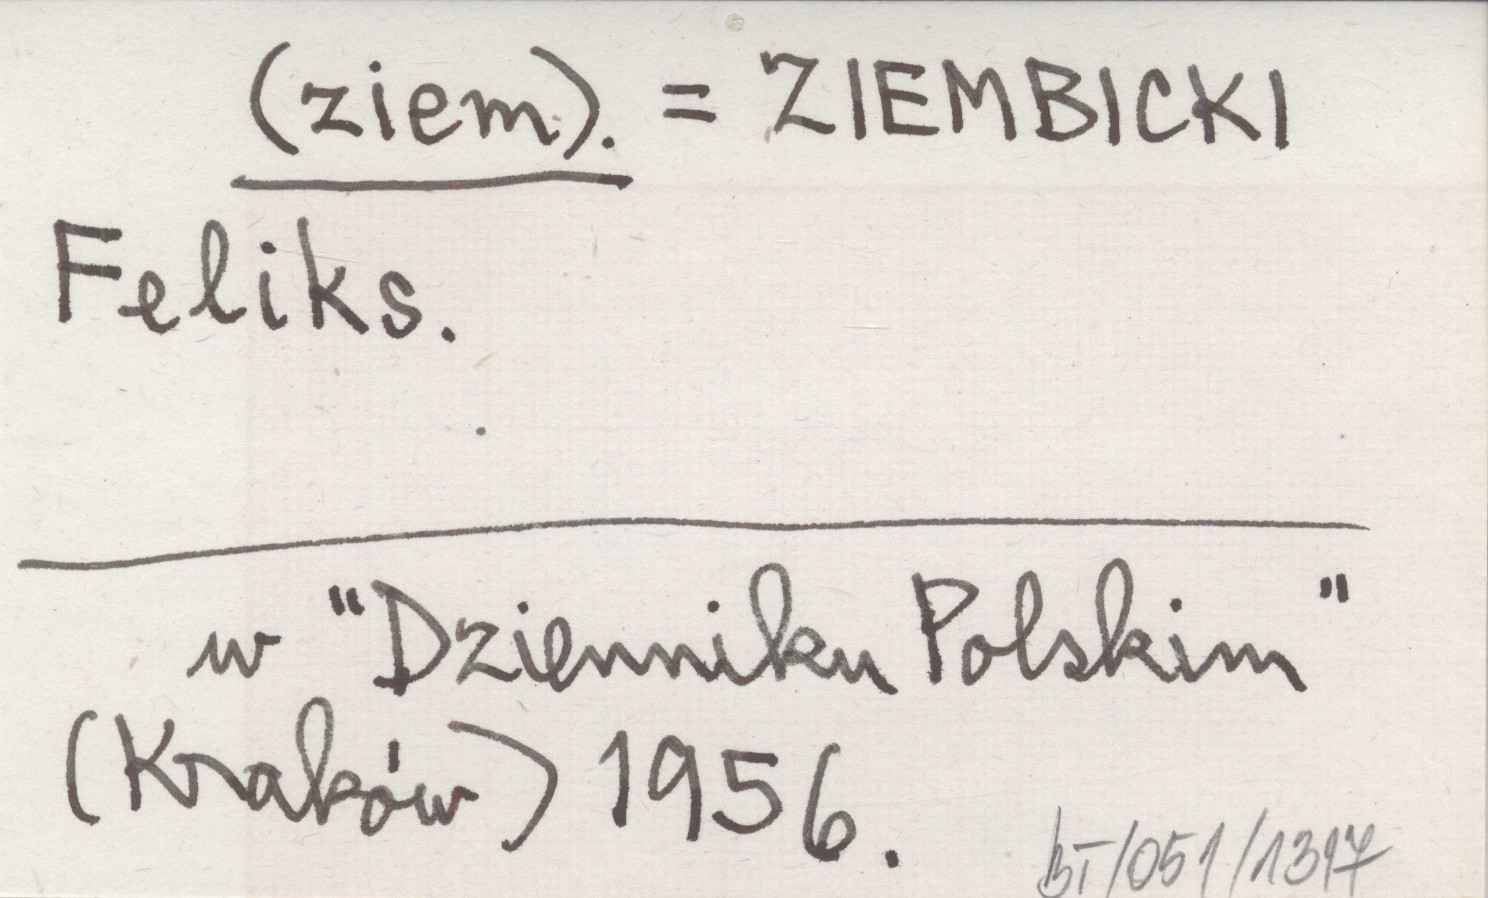 (ziem). = ZIEMBICKI
Feliks.
w "Dzienniku Polskim"
(Kraków) 1956.
BT/051/1317